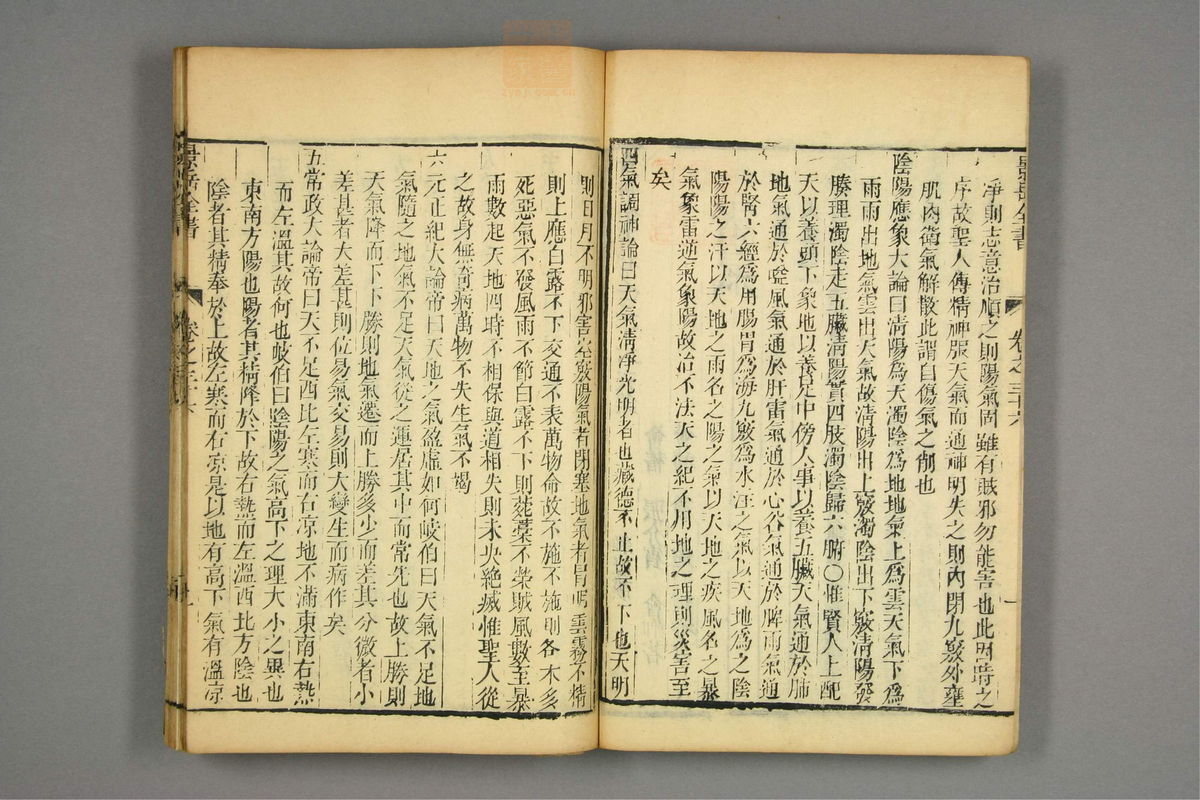 景岳全書
卷之三十六
一
淨則志意治順之則陽氣固雖有賊邪勿能害也此因時之
序故聖人傳精神服天氣而通神明失之則內閉九竅外壅
肌肉衛氣解散此謂自傷氣之削也
陰陽應象大論曰清陽爲天濁陰爲地地氣上爲雲天氣下爲
雨雨出地氣雲出天氣故清陽出上竅濁陰出下竅清陽發
腠理濁陰走五臟清陽實四肢濁陰歸六腑〇惟賢人上配
天以養頭下象地以養足中傍人事以養五臟天氣通於肺
地氣通於嗌風氣通於肝雷氣通於心谷氣通於脾雨氣通
於腎六經爲川腸胃爲海九竅爲水注之氣以天地爲之陰
陽陽之汗以天地之雨名之陽之氣以天地之疾風名之暴
氣象雷逆氣象陽故治不法天之紀不用地之理則災害至
矣
四氣調神論曰天氣清凈光明者也藏德不止故不下也天明
則日月不明邪害空竅陽氣者閉塞地氣者冒明雲霧不精
則上應白露不下交通不表萬物命故不施不施則各木多
死惡氣不發風雨不節白露不下則菀藁不榮賊風數至暴
雨數起天地四時不相保與道相失則未央絶滅惟聖人從
之故身無奇病萬物不失生氣不竭
六元正紀大論帝曰天地之氣盈虛如何岐伯曰天氣不足地
氣隨之地氣不足天氣從之運居其中而常先也故上勝則
天氣降而下下勝則地氣遷而上勝多少而差其分微者小
差甚者大差甚則位易氣交易則大變生而病作矣
五常政大論帝曰天不足西北左寒而右凉地不滿東南右熱
而左溫其故何也岐伯曰陰陽之氣高下之理大小之異也
東南方陽也陽者其精降於下故右熱而左溫西北方陰也
陰者其精奉於上故左寒而右凉是以地有高下氣有溫凉
景岳全書
卷之三十六